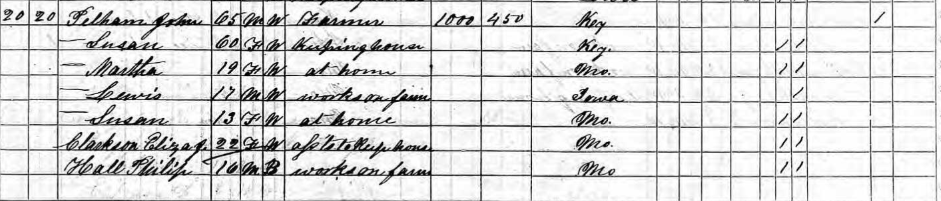 20 20 Pelham John 65 M W Farmer 1000 450 Key 1
— Susan 60 F W Keeping house Key. 1 1
— Martha 19 F W at home Mo. 1 1
— Lewis 17 M W works on farm Iowa 1
— Susan 13 F W at home Mo. 1 1
Clarkson Eliza J. 22 F W assts to keep house Mo. 1 1
Hall Philip 16 M B works on farm Mo 1 1